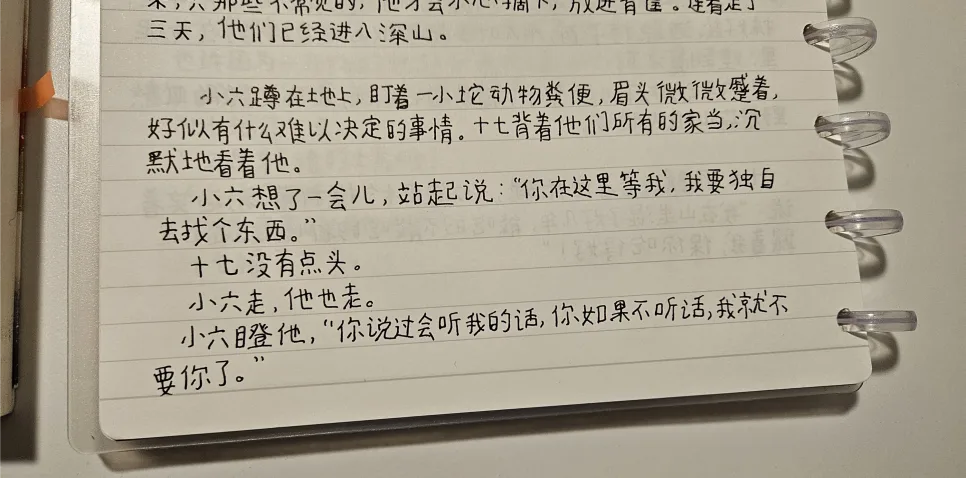 来，只那些不常见的，他才会小心摘下，放进背筐。连着走了
三天，他们已经进入深山。
小六蹲在地上，盯着一小坨动物粪便，眉头微微蹙着，
好似有什么难以决定的事情。十七背着他们所有的家当，沉
默地看着他。
小六想了一会儿，站起说：“你在这里等我，我要独自
去找个东西。”
十七没有点头。
小六走，他也走。
小六瞪他，“你说过会听我的话，你如果不听话，我就不
要你了。”